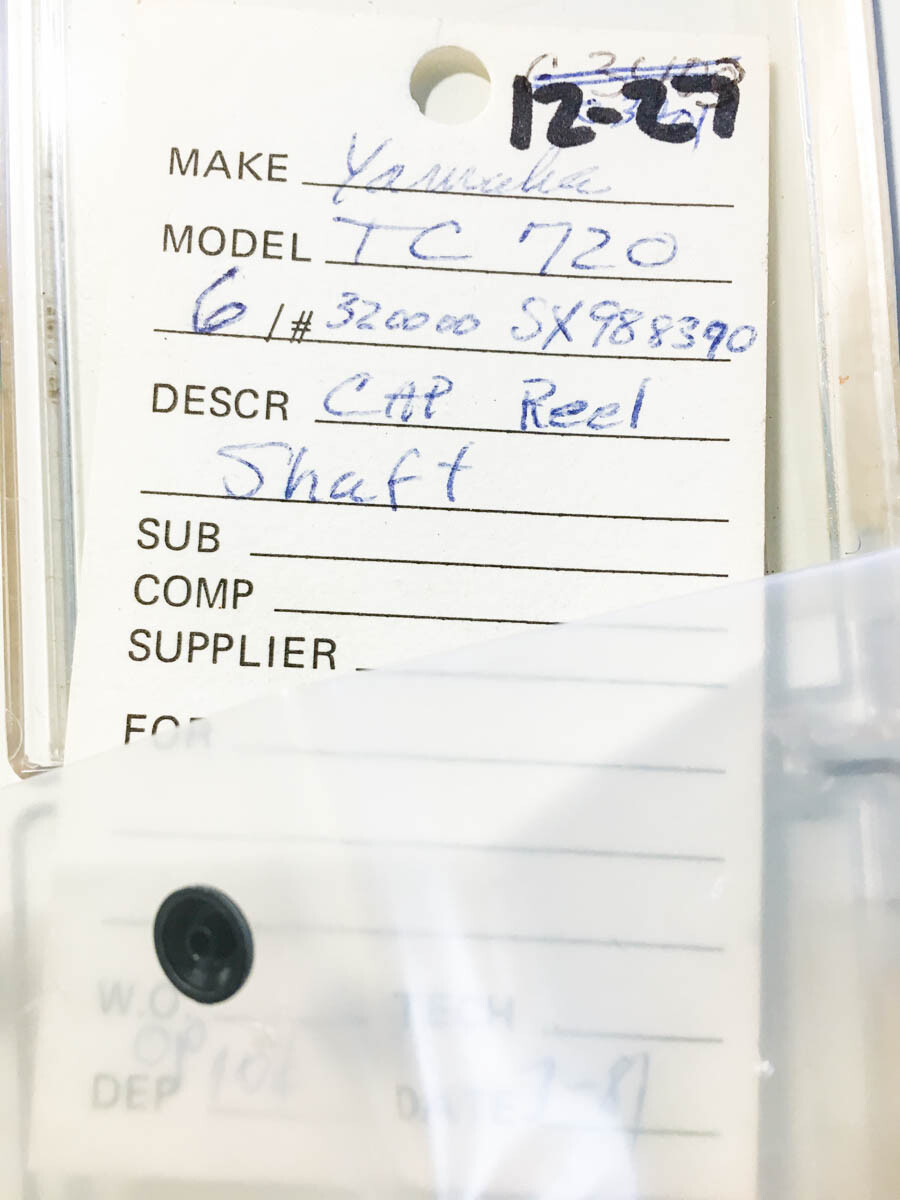 12-27
MAKE Yamaha
MODEL TC 720
6 /# 320000 SX988390
DESCR CAP Reel
Shaft
SUB
COMP
SUPPLIER
FOR
W.O. TECH
DEP DATE -81